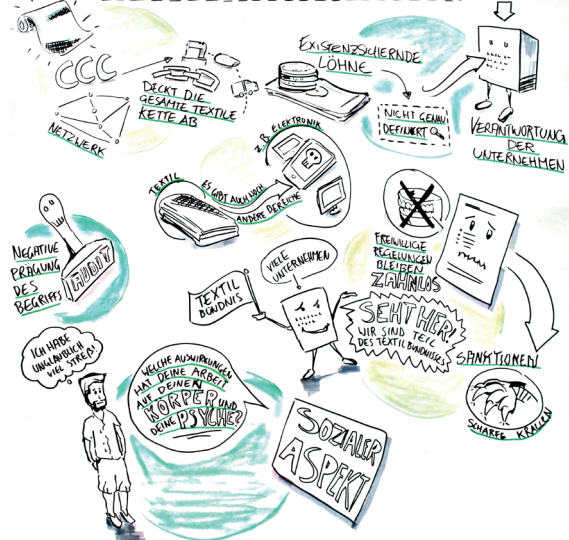 CCC
NETZWERK
DECKT DIE
GESAMTE TEXTILE
KETTE AB
EXISTENZSICHERNDE
LÖHNE
NICHT GENAU
DEFINIERT
VERANTWORTUNG
DER
UNTERNEHMEN
TEXTIL
ES GIBT AUCH NOCH
ANDERE BEREICHE
Z.B. ELEKTRONIK
NEGATIVE
PRÄGUNG
DES
BEGRIFFS
AUDIT
FREIWILLIGE
REGELUNGEN
BLEIBEN
ZAHNLOS
VIELE
UNTERNEHMEN
TEXTIL
BÜNDNIS
SEHT HER!
WIR SIND TEIL
DES TEXTILBÜNDNISSES
SANKTIONEN
SCHARFE KRALLEN
ICH HABE
UNGLAUBLICH
VIEL STRESS!
WELCHE AUSWIRKUNGEN
HAT DEINE ARBEIT
AUF DEINEN
KÖRPER UND
DEINE PSYCHE?
SOZIALER
ASPEKT